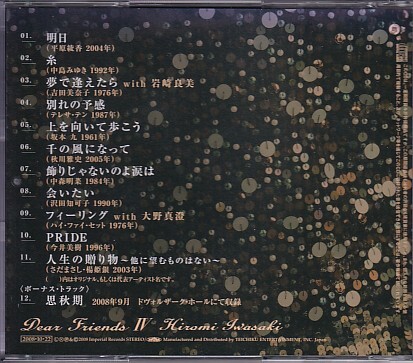 01. 明日
(平原綾香 2004年)
02. 糸
(中島みゆき 1992年)
03. 夢で逢えたら with 岩崎良美
(吉田美奈子 1976年)
04. 別れの予感
(テレサ・テン 1987年)
05. 上を向いて歩こう
(坂本 九 1961年)
06. 千の風になって
(秋川雅史 2005年)
07. 飾りじゃないのよ涙は
(中森明菜 1984年)
08. 会いたい
(沢田知可子 1990年)
09. フィーリング with 大野真澄
(ハイ・ファイ・セット 1976年)
10. PRIDE
(今井美樹 1996年)
11. 人生の贈り物 ～他に望むものはない～
(さだまさし・楊姫銀 2003年)
( )内はオリジナル、もしくは代表アーティスト名です。
〈ボーナス・トラック〉
12. 思秋期 2008年9月 ドヴォルザークホールにて収録
Dear Friends IV Hiromi Iwasaki
2008・10・22 2008 Imperial Records STEREO Manufactured and Distributed by TEICHIKU ENTERTAINMENT, INC. Japan